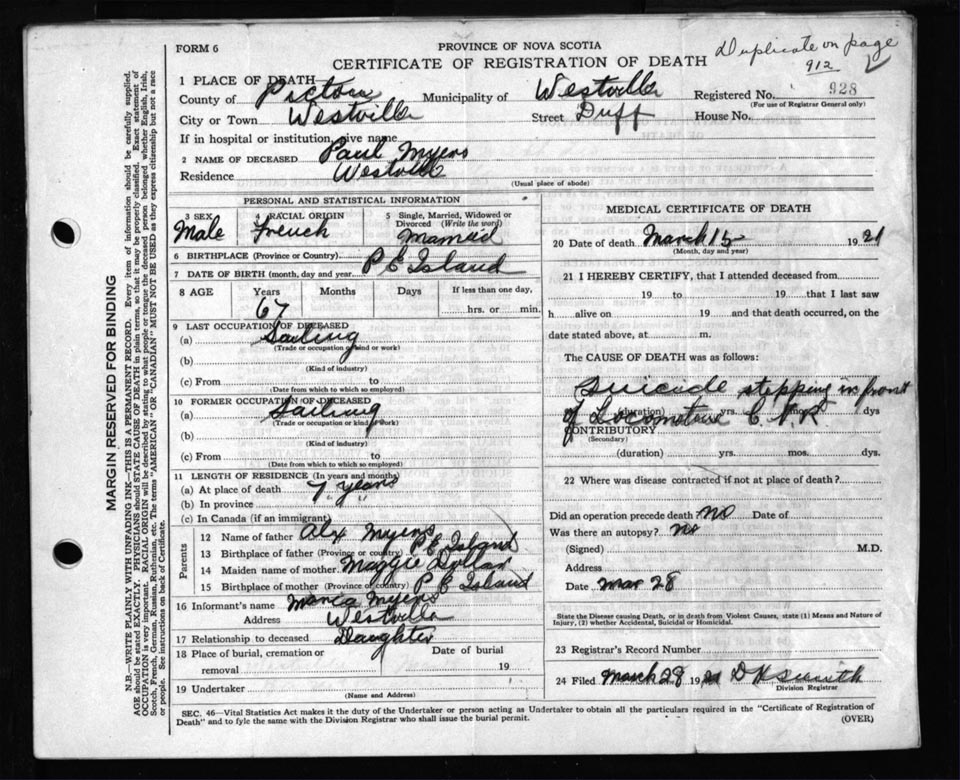 FORM 6
PROVINCE OF NOVA SCOTIA
CERTIFICATE OF REGISTRATION OF DEATH
Duplicate on page
912
1 PLACE OF DEATH
County of Pictou Municipality of Westville Registered No. 928
(For use of Registrar General only)
City or Town Westville Street Duff House No.
If in hospital or institution, give name
2 NAME OF DECEASED Paul Myers
Residence Westville
(Usual place of abode)
PERSONAL AND STATISTICAL INFORMATION
3 SEX Male
4 RACIAL ORIGIN French
5 Single, Married, Widowed or Divorced (Write the word) Married
6 BIRTHPLACE (Province or Country) P E Island
7 DATE OF BIRTH (month, day and year)
8 AGE Years Months Days If less than one day,
67 hrs. or min.
9 LAST OCCUPATION OF DECEASED
(a) Sailing
(Trade or occupation or kind or work)
(b)
(Kind of industry)
(c) From to
(Date from which to which so employed)
10 FORMER OCCUPATION OF DECEASED
(a) Sailing
(Trade or occupation or kind of work)
(b)
(Kind of industry)
(c) From to
(Date from which to which so employed)
11 LENGTH OF RESIDENCE (In years and months)
(a) At place of death 7 years
(b) In province
(c) In Canada (if an immigrant)
Parents
12 Name of father Alex Myers
13 Birthplace of father (Province or country) P E Island
14 Maiden name of mother Maggie Dollar
15 Birthplace of mother (Province or country) P E Island
16 Informant's name Myers
Address Westville
17 Relationship to deceased Daughter
18 Place of burial, cremation or removal Date of burial
19
19 Undertaker
(Name and Address)
MEDICAL CERTIFICATE OF DEATH
20 Date of death March 15 1921
(Month, day and year)
21 I HEREBY CERTIFY, that I attended deceased from
19 to 19 that I last saw
h alive on 19 and that death occurred, on the
date stated above, at m.
The CAUSE OF DEATH was as follows:
Suicide stepping in front
(duration) yrs. mos. dys
of Locomotive C.N.R
CONTRIBUTORY
(Secondary)
(duration) yrs. mos. dys.
22 Where was disease contracted if not at place of death?
Did an operation precede death? No Date of
Was there an autopsy? No
(Signed) M.D.
Address
Date Mar 28
State the Disease causing Death, or in death from Violent Causes, state (1) Means and Nature of
Injury, (2) whether Accidental, Suicidal or Homicidal.
23 Registrar's Record Number
24 Filed March 28 1921 D H Smith
Division Registrar
SEC. 46—Vital Statistics Act makes it the duty of the Undertaker or person acting as Undertaker to obtain all the particulars required in the "Certificate of Registration of
Death" and to fyle the same with the Division Registrar who shall issue the burial permit.
(OVER)
MARGIN RESERVED FOR BINDING
N.B.—WRITE PLAINLY WITH UNFADING INK—THIS IS A PERMANENT RECORD. Every item of information should be carefully supplied.
AGE should be stated EXACTLY. PHYSICIANS should STATE CAUSE OF DEATH in plain terms, so that it may be properly classified. Exact statement of
OCCUPATION is very important. RACIAL ORIGIN will be described by stating to what people or tongue the deceased person belonged whether English, Irish,
Scotch, French, German, Russian, Ruthenian, etc. The terms "AMERICAN" OR "CANADIAN" MUST NOT BE USED as they express citizenship but not a race
or people. See instructions on back of Certificate.